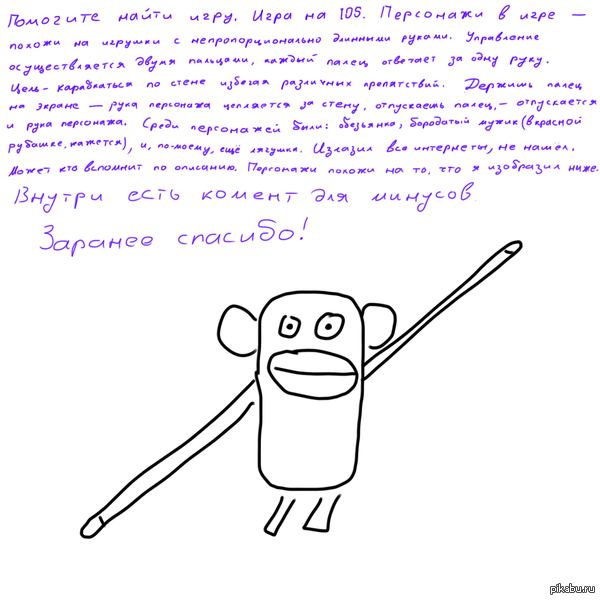 Помогите найти игру. Игра на IOS. Персонажи в игре —
похожи на игрушки с непропорционально длинными руками. Управление
осуществляется двумя пальцами, каждый палец отвечает за одну руку.
Цель - карабкаться по стене избегая различных препятствий. Держишь палец
на экране — рука персонажа цепляется за стену, отпускаешь палец, — отпускается
и рука персонажа. Среди персонажей были: обезьянка, бородатый мужик (в красной
рубашке, кажется), и, по-моему, ещё лягушка. Излазил все интернеты, не нашел.
Может кто вспомнит по описанию. Персонажи похожи на то, что я изобразил ниже.
Внутри есть комент для минусов.
Заранее спасибо!
pikabu.ru